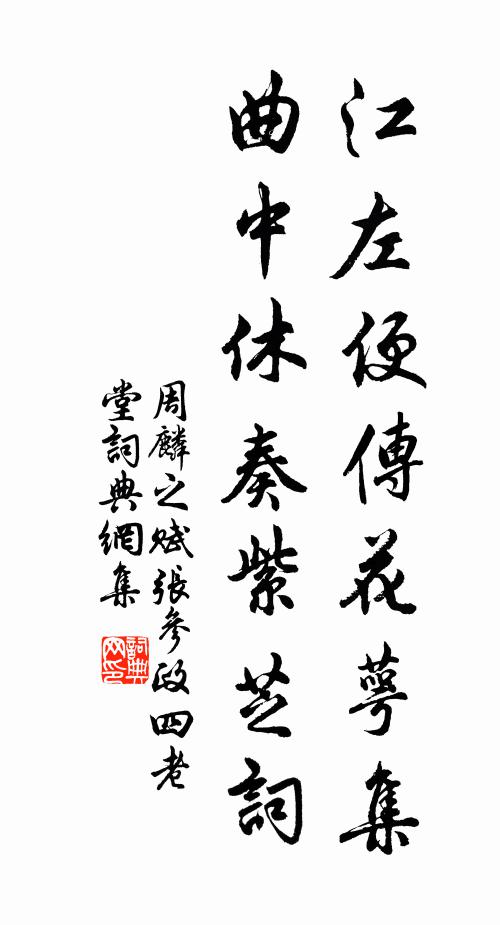 江左便傳花萼集
曲中休奏紫芝詞
周麟之賦張參政四老
堂詞典網集
詞典网印